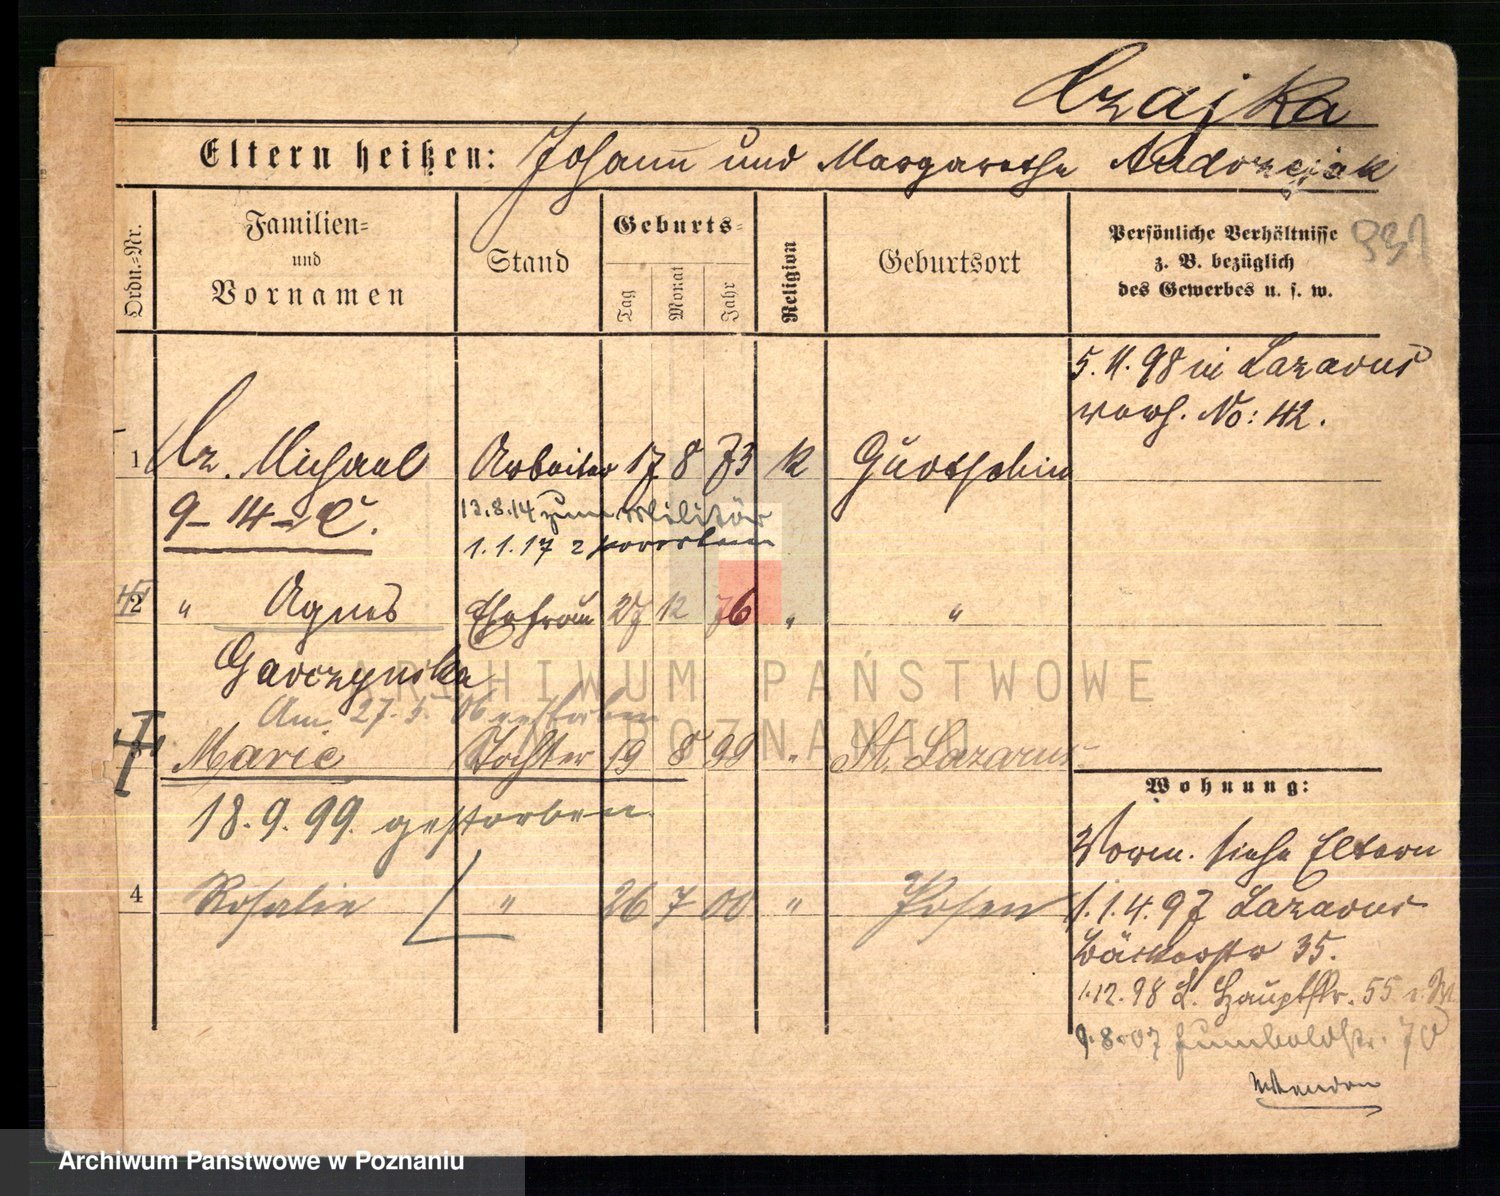 Czajka
Eltern heißen: Johann und Margarethe Andrzejak
Ordn.-Nr.
Familien-
und
Vornamen
Stand
Geburts-
Tag
Monat
Jahr
Religion
Geburtsort
Persönliche Verhältnisse
z. B. bezüglich
des Gewerbes u. s. w.
5. 11. 98 in Lazarus
verh. No: 42.
1 Cz. Michael Arbeiter 17 8 73 k Gurtschin
9-14-C.
13.8.14 zum Militär
1.1.17
2 " Agnes Ehefrau 27 12 76 " "
Garczynska
Am 27. 5. 06 verstorben
Marie Tochter 19 8 99 " St. Lazarus
18. 9. 99. gestorben.
4 Rosalie " 26 7 00 " Posen
Wohnung:
Vorm. siehe Eltern
1. 1. 4. 97 Lazarus
Bäckerstr 35.
1.12. 98 L. Hauptstr. 55
9. 8. 07 Humboldtstr. 70
ARCHIWUM PAŃSTWOWE
W POZNANIU
Archiwum Państwowe w Poznaniu